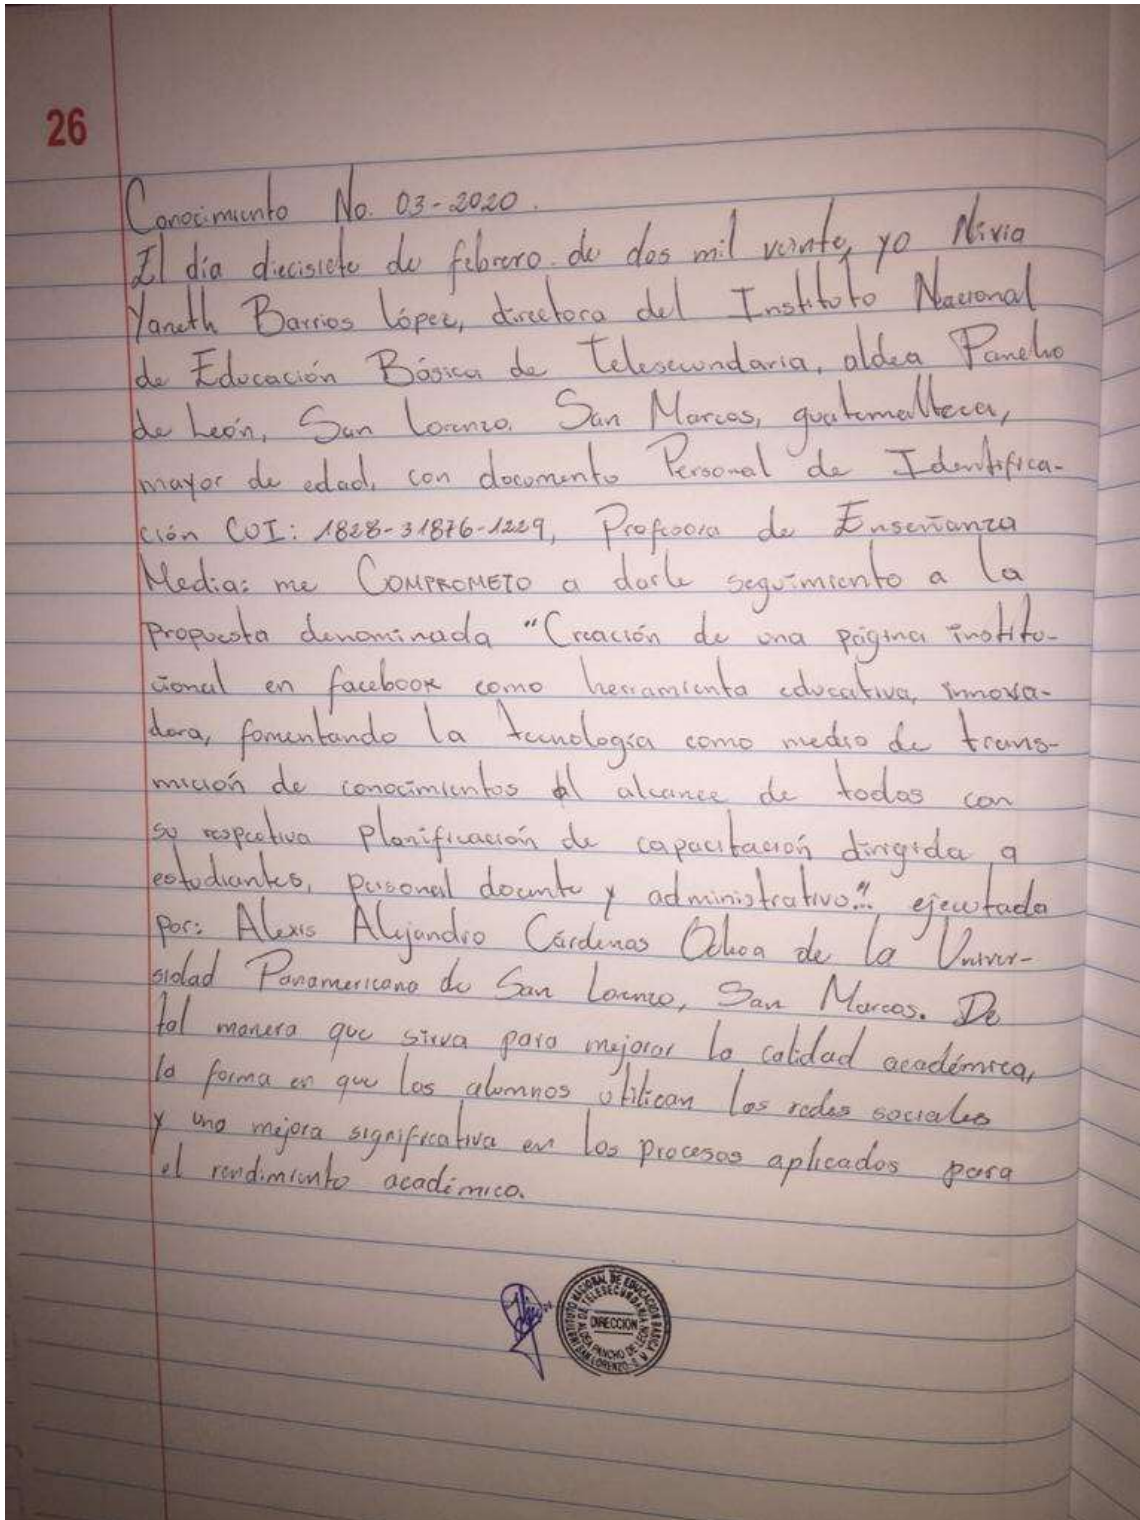 26
Conocimiento No. 03-2020.
El día diecisiete de febrero de dos mil veinte, yo Nivia
Yaneth Barrios López, directora del Instituto Nacional
de Educación Básica de Telesecundaria, aldea Pancho
de León, San Lorenzo, San Marcos, guatemalteca,
mayor de edad, con documento Personal de Identifica-
ción CUI: 1828-31876-1229, Profesora de Enseñanza
Media: me COMPROMETO a darle seguimiento a la
propuesta denominada "Creación de una página institu-
cional en facebook como herramienta educativa, innova-
dora, fomentando la tecnología como medio de trans-
mición de conocimientos al alcance de todos con
su respectiva planificación de capacitación dirigida a
estudiantes, personal docente y administrativo." ejecutada
por: Alexis Alejandro Cárdenas Ochoa de la Univer-
sidad Panamericana de San Lorenzo, San Marcos. De
tal manera que sirva para mejorar la calidad académica,
la forma en que los alumnos utilican las redes sociales
y una mejora significativa en los procesos aplicados para
el rendimiento académico.
INSTITUTO NACIONAL DE EDUCACION BASICA
DE TELESECUNDARIA
DIRECCION
ALDEA PANCHO DE LEON
SAN LORENZO, S. M.